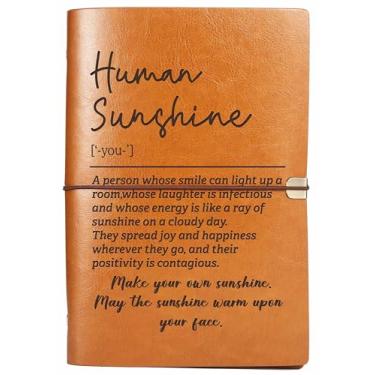 Human
Sunshine
['-you-']
A person whose smile can light up a
room,whose laughter is infectious
and whose energy is like a ray of
sunshine on a cloudy day.
They spread joy and happiness
wherever they go, and their
positivity is contagious.
Make your own sunshine.
May the sunshine warm upon
your face.